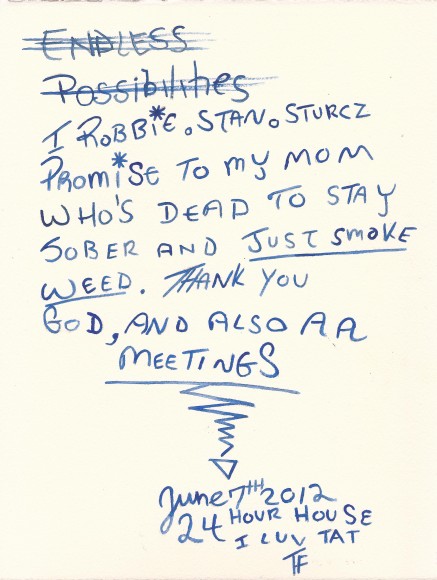 ENDLESS
Possibilities
I ROBBIE.STAN.STURCZ
PROMISE TO MY MOM
WHO'S DEAD TO STAY
SOBER AND JUST SMOKE
WEED. THANK YOU
GOD, AND ALSO AA
MEETINGS
June 7TH 2012
24 HOUR HOUSE
I LUV TAT
TF